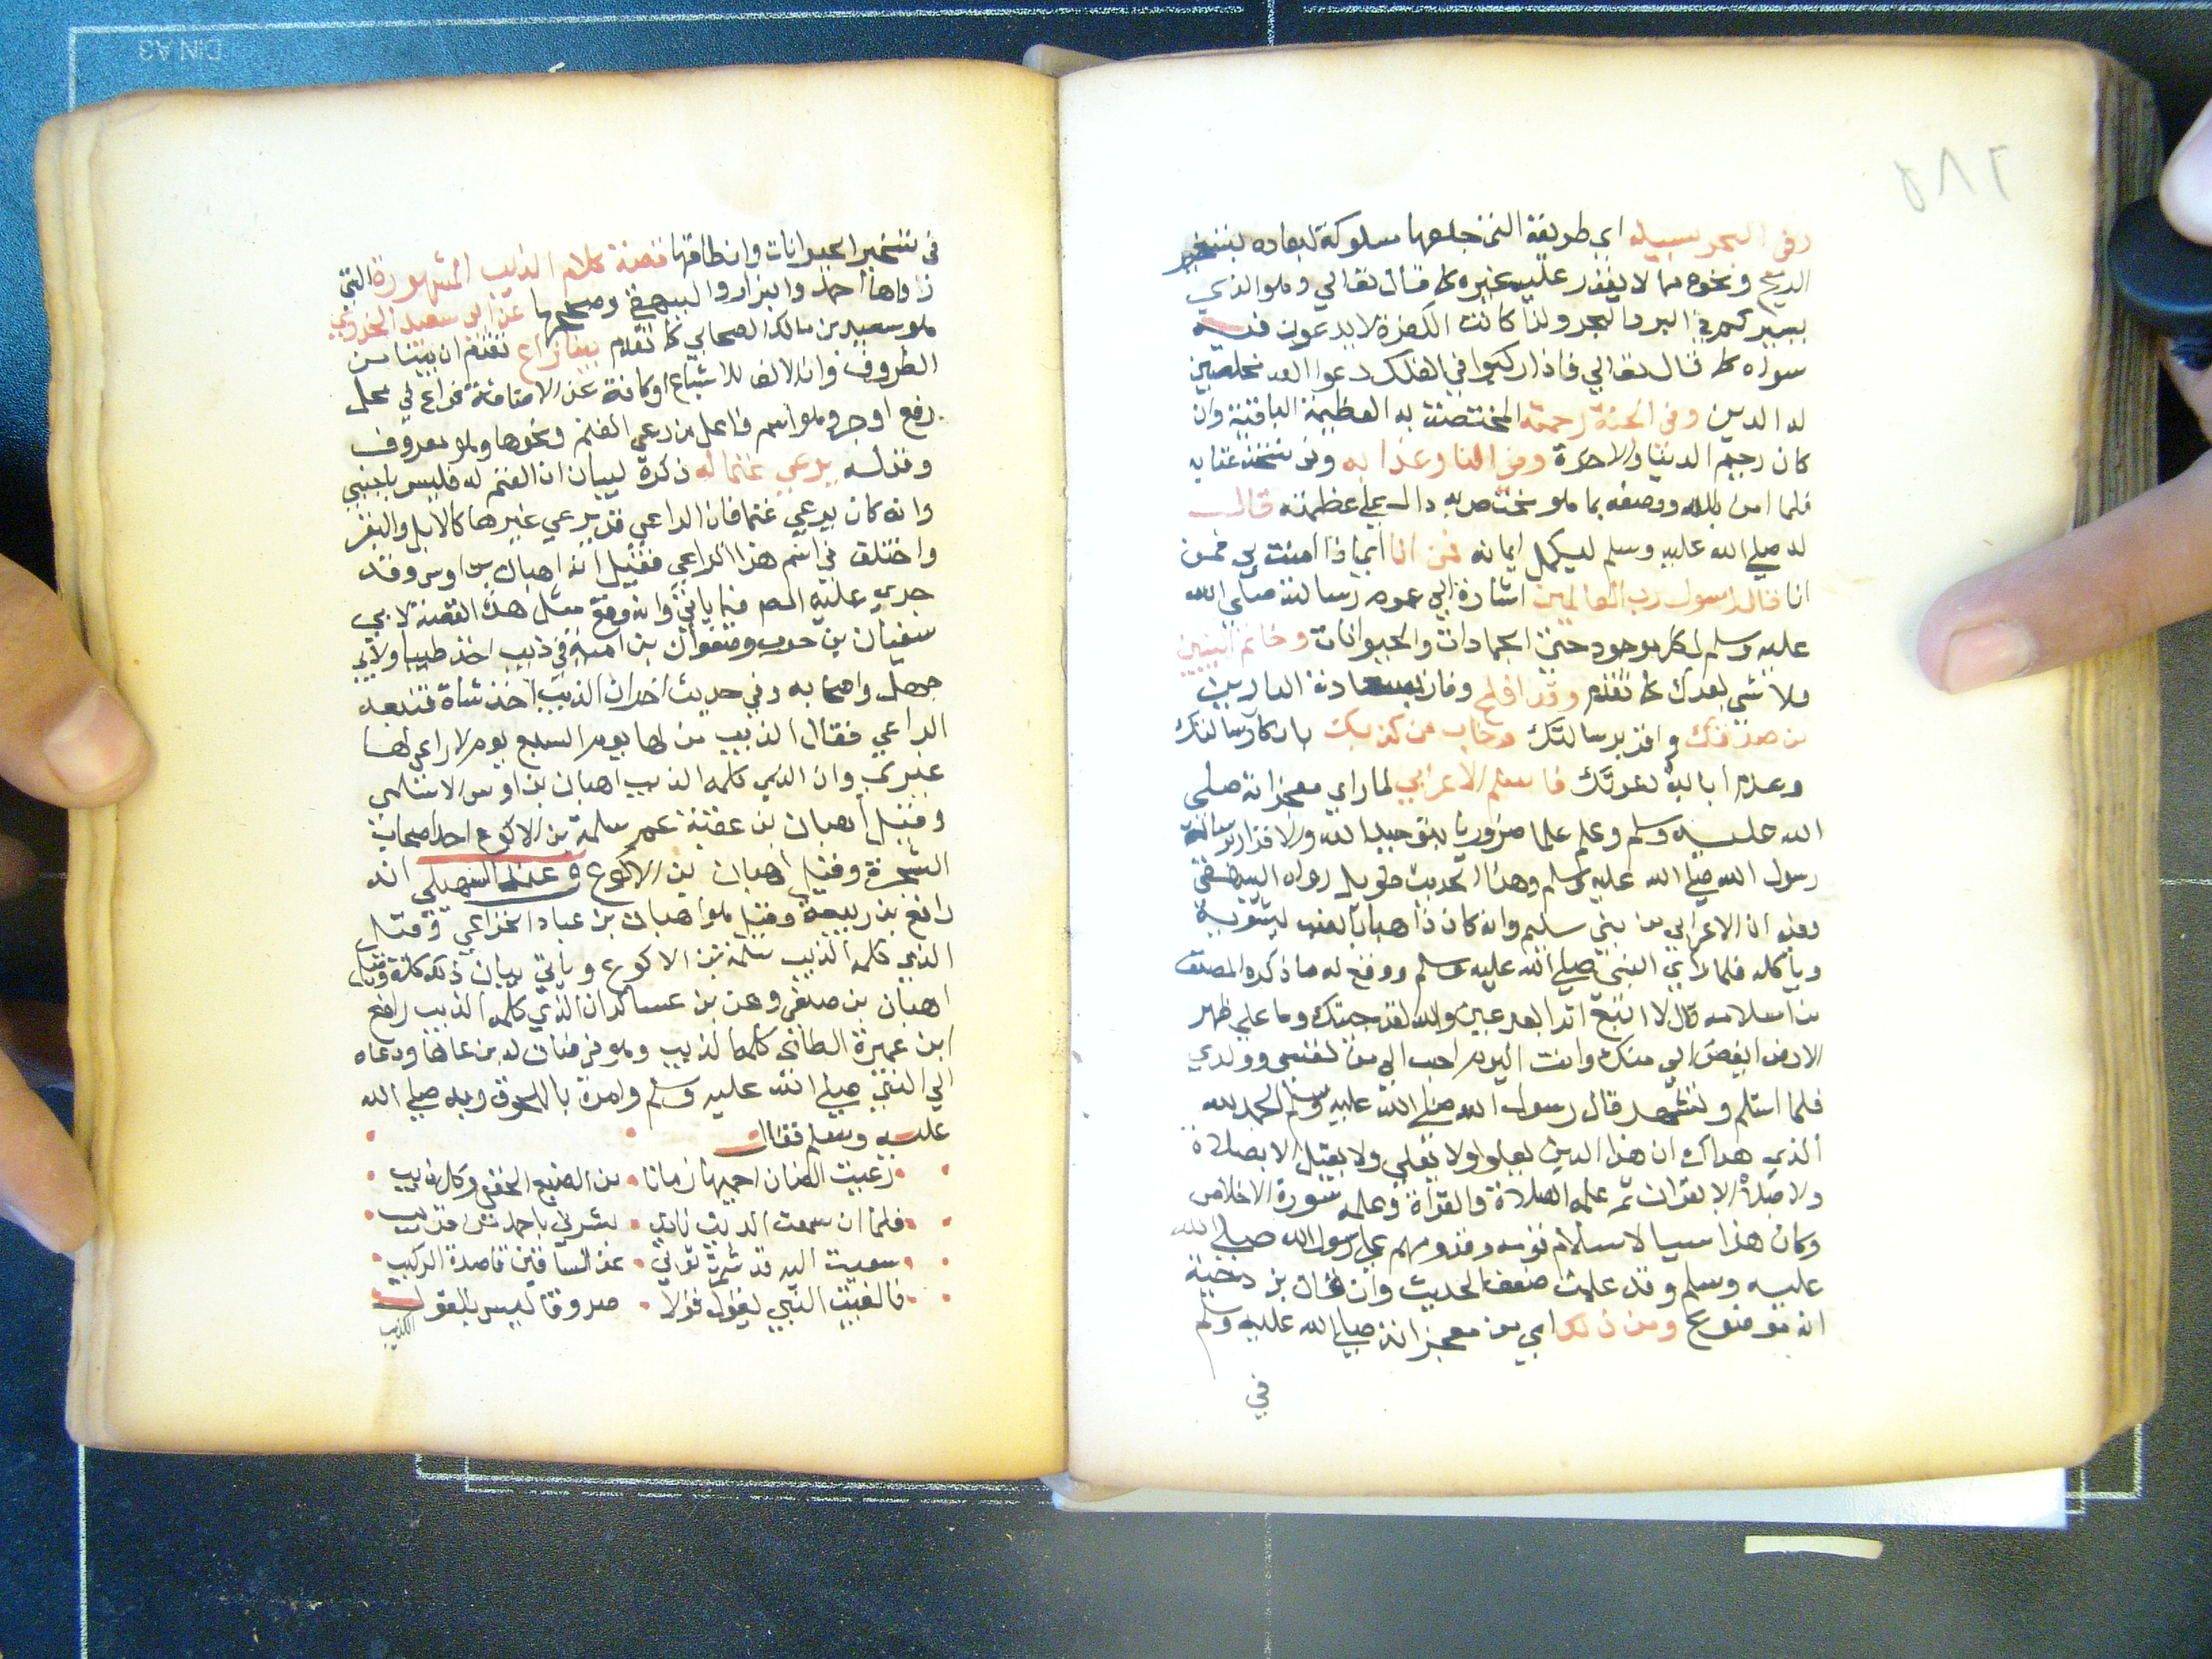 وفي البحر سبيله اي طريقه التي جعلها مسلوكة لعباده بتسخير
الريح ونحوه مما لا يقدر عليه غيره كما قال تعالي وهو الذي
يسيركم في البر والبحر ولذا كانت الكفرة لا يدعون فيه
سواه كما قال تعالي فاذا ركبوا في الفلك دعوا الله مخلصين
له الدين وفي الجنة رحمته المختصة به العظيمة الباقية وان
كان رحيم الدنيا والاخرة وفي النار عذابه وفي عقابه
فلما امن بالله ووصفه بما هو مختص به دال علي عظمته قال
له صلي الله عليه وسلم ليكمل ايمانه فمن انا اي اذا امنت بي فمن
انا قال رسول رب العالمين اشارة الي عموم رسالته صلي الله
عليه وسلم لكل موجود حتي الجمادات والحيوانات وخاتم النبيين
ولا نبي بعدك كما تقدم وقد افلح وفاز بسعادة الدارين
من صدقك واقر برسالتك وخاب من كذبك بانكار رسالتك
وعدم لدعوتك فاسلم الاعرابي لما راي معجزاته صلي
الله عليه وسلم وعلم علما ضروريا بتوحيد الله والاقرار برسالة
رسول الله صلي الله عليه وسلم وهذا الحديث طويل رواه البيهقي
وفيه ان الاعرابي من بني سليم وانه كان ذاهبا بالضب ليشويه
وياكله فلما راي النبي صلي الله عليه وسلم ووقع له ما ذكره المصنف
من اسلامه قال لا اتبع اثرا بعد عين والله لقد جيتك وما علي ظهر
الارض ابغض الي منك وانت اليوم احب الي من نفسي وولدي
فلما اسلم وتشهد قال رسول الله صلي الله عليه وسلم الحمد لله
الذي هداك ان هذا الدين يعلوا ولا يعلي ولا يقبل الا بصلاة
ولا صلاة الا بقران ثم علمه الصلاة والقراة وعلمه سورة الاخلاص
وكان هذا سببا لاسلام قومه وقدومهم علي رسول الله صلي الله
عليه وسلم وقد علمت ضعف الحديث وان قال بن دحية
انه موضوع ومن ذلك اي من معجزاته صلي الله عليه وسلم
في
في تسخير الحيوانات وانطاقها قصة كلام الذيب المشهورة التي
رواها احمد والبزار والبيهقي وصححها عن ابي سعيد الخدري
هو سعيد بن مالك الصحابي كما تقدم بينا راع تقدم ان بينا من
الظروف وان الالف للاشباع او كافة عن الاضافة فراع في محل
رفع او جر وهو اسم فاعل من رعي الغنم ونحوها وهو معروف
وقوله يرعي غنما له ذكره لبيان ان الغنم له فليس باجنبي
وانه كان يرعي غنما فان الراعي قد يرعي غيرها كالابل والبقر
واختلف في اسم هذا الراعي فقيل انه اهبان بن اوس وقد
جري عليه المص فيما ياتي وانه وقع مثل هذه القصة لابي
سفيان بن حرب وصفوان بن امية في ذيب اخذ ظبيا ولابي
جهل واصحابه وفي حديث اخر ان الذيب اخذ شاة فتبعه
الراعي فقال الذيب من لها يوم السبع يوم لا راعي لها
غيري وان الذي كلمه الذيب اهبان بن اوس الاسلمي
وقيل اهبان بن عقبة عم سلمة بن الاكوع احد اصحاب
الشجرة وقيل اهبان بن الاكوع وعند السهيلي انه
رافع بن ربيعة وقيل هو اهبان بن عباد الخزاعي وقيل
الذي كلمه الذيب سلمة بن الاكوع وياتي بيان ذلك كله وقيل
اهبان بن صيفي وعن بن عساكر ان الذي كلمه الذيب رافع
ابن عميرة الطائي كلمه الذيب وهو في ضان له يرعاها ودعاه
الي النبي صلي الله عليه وسلم وامره باللحوق به صلي الله
عليه وسلم فقال
رعيت الضان احميها زمانا من الضبع الخفي وكل ذيب
فلما ان سمعت الذيب نادي يبشرني باحمد من قريب
سعيت اليه قد شمرت ثوبي عن الساقين قاصدة الركيب
فالفيت النبي يقول قولا صدوقا ليس بالقول
الكذيب